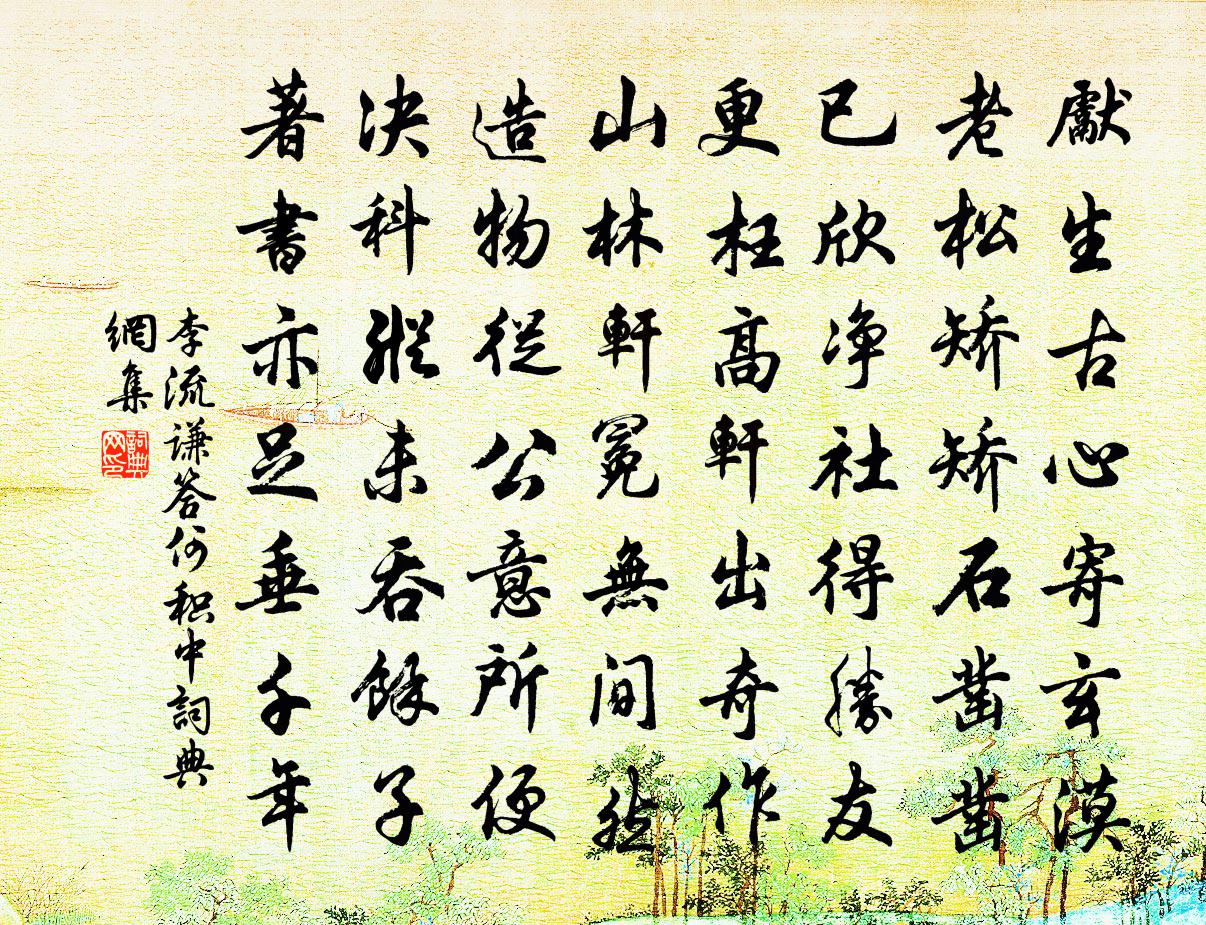 獻生古心寄玄漠
老松矯矯石凿凿
已欣净社得勝友
更枉高軒出奇作
山林軒冕無間然
造物從公意所便
决科縱未吞餘子
著書亦足垂千年
李流謙答何积中詞典
網集
詞典
网印